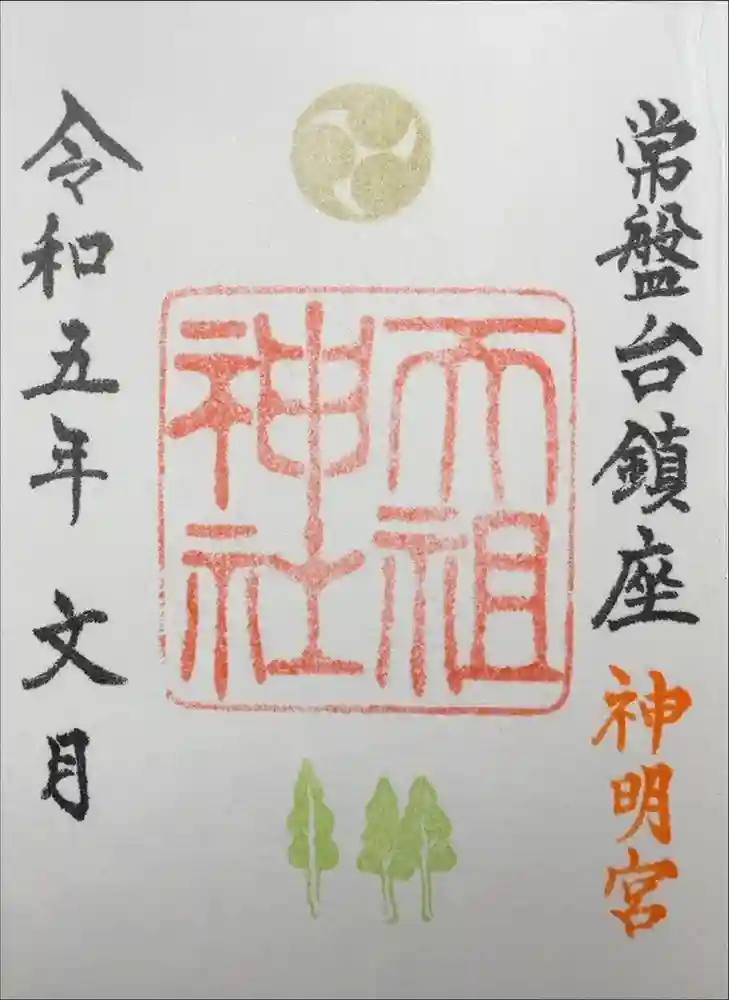 常盤台鎮座 神明宮
天祖神社
令和五年 文月